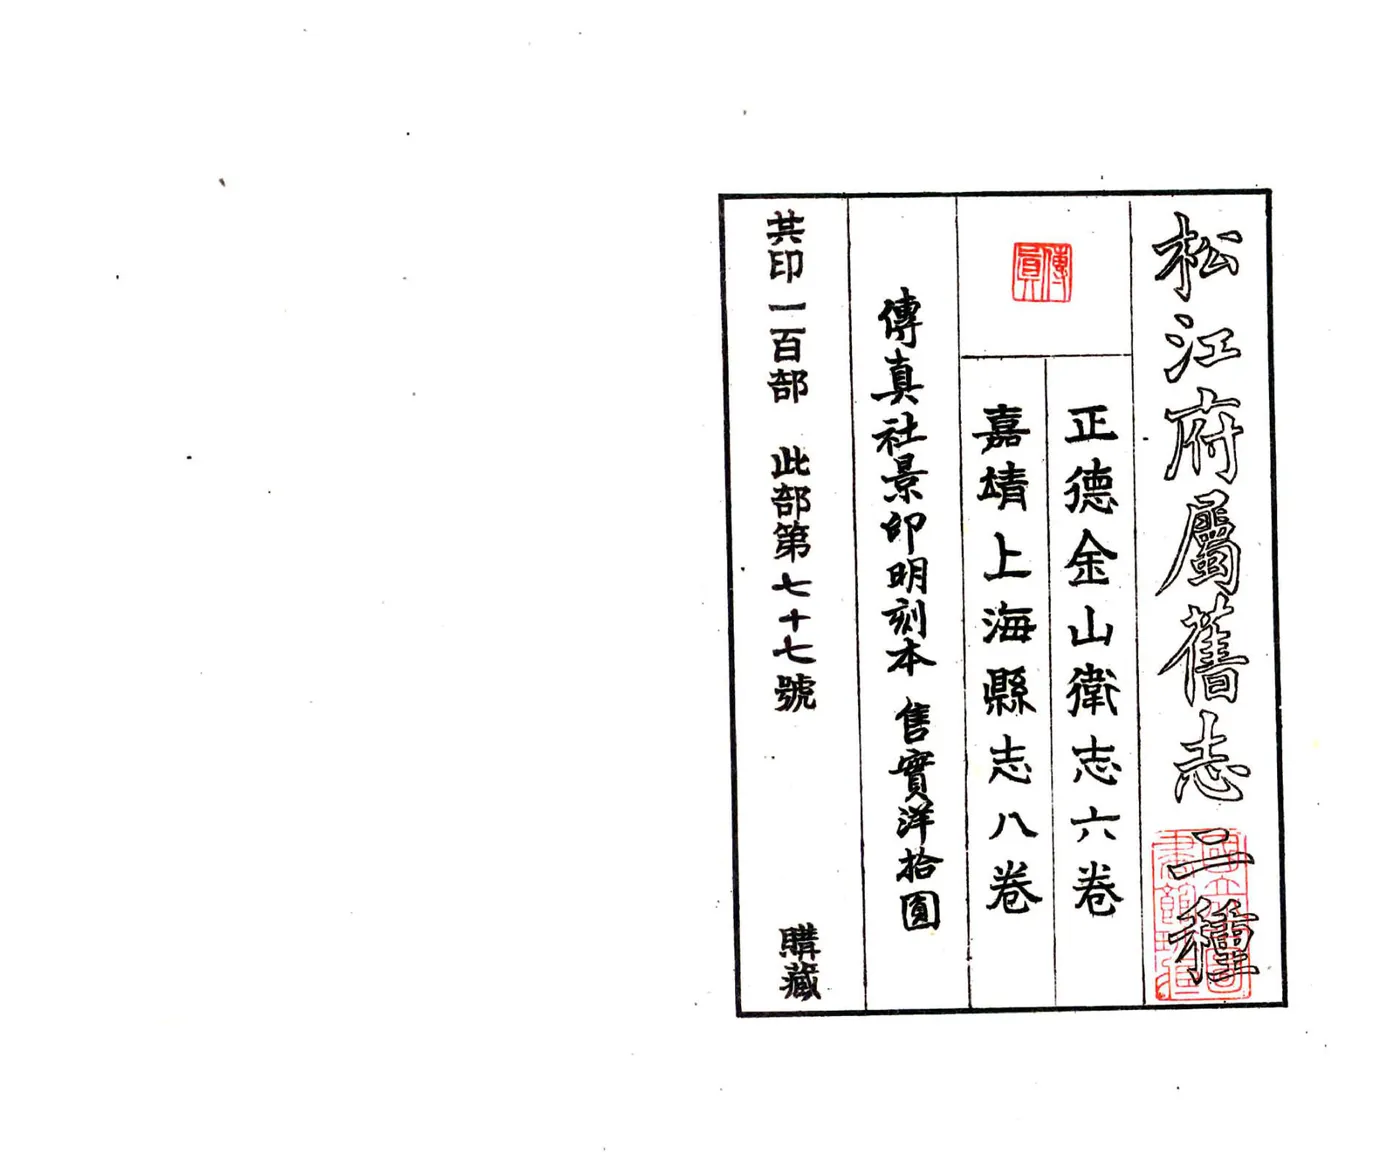 松江府屬舊志二種
正德金山衛志六卷
嘉靖上海縣志八卷
傳真社景印明刻本 售實洋拾圓
共印一百部 此部第七十七號 購藏